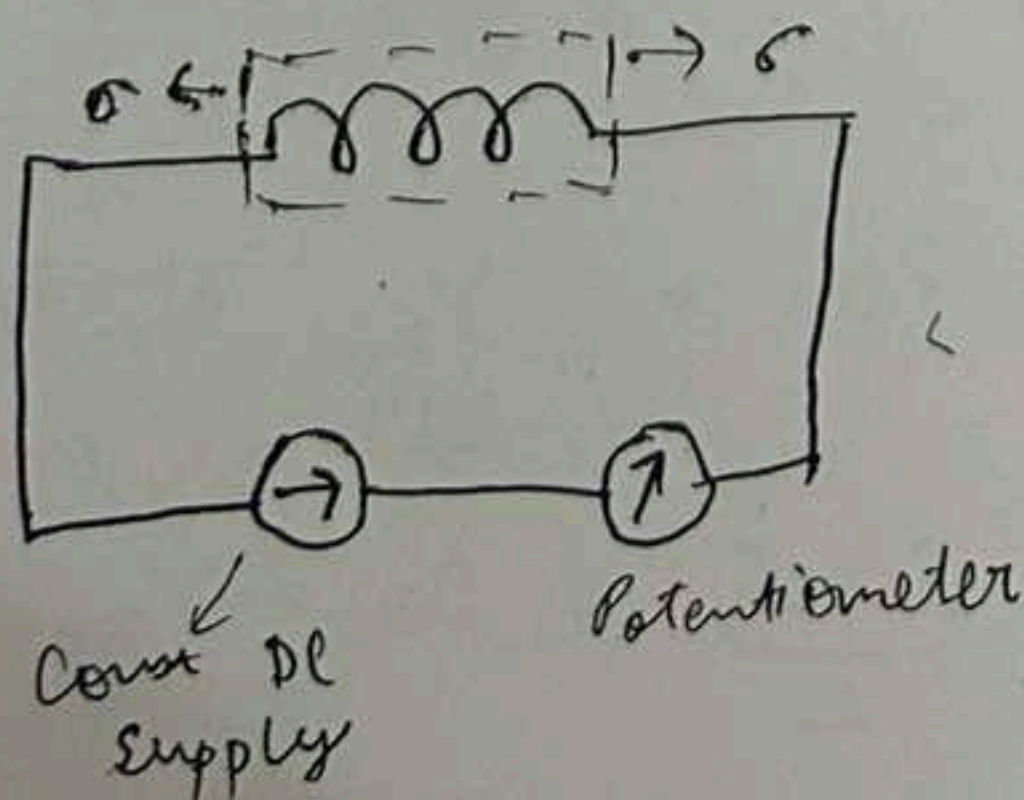 σ σ
Const DC
Supply
Potentiometer